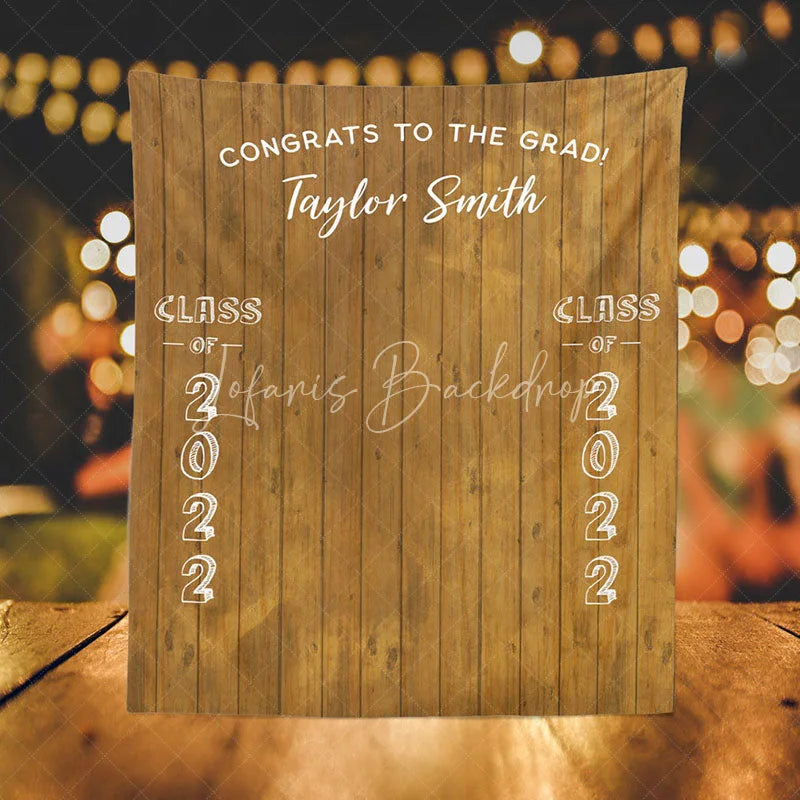 CONGRATS TO THE GRAD!
Taylor Smith
CLASS
OF
2
0
2
2
CLASS
OF
2
0
2
2
Lofaris Backdrop